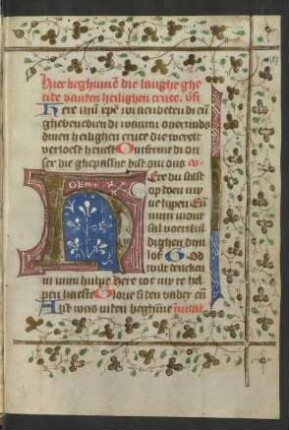 Hier beghinnẽ die langhe ghe
tide vanden heilighen cruce. vſ
Here ihũ xpe wi aenbeden di eñ
ghebenedien di want ouermids
dinen heilighen cruce die werelt
verloeſt heueſt Ontferme di on
ſer die ghepaſſijt biſt om ons
Ere du ſalſt
op doen my
ne lipen Eñ
minn mont
ſal voertkũ
dighen dijn
lof God
wilt dencken
in minn hulpe Here wt my te hel
pen haeſte Glorie ſi den vader eñ
Alſt was inden beghinne